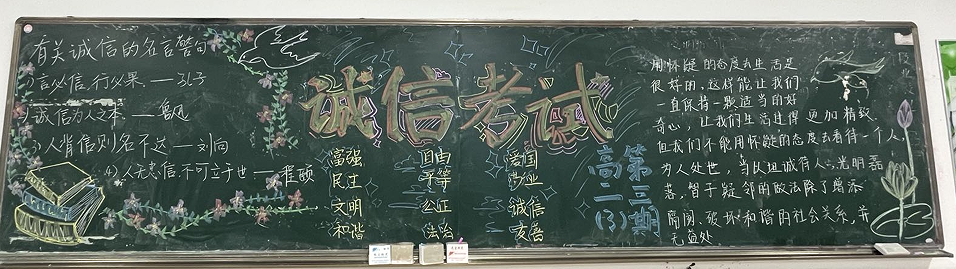 有关诚信的名言警句
1)言必信,行必果.——孔子
2)诚信为人之本.——鲁迅
3)人背信则名不达——刘向
4)人无忠信,不可立于世——程颐
诚信考试
富强 自由 爱国
民主 平等 敬业
文明 公正 诚信
和谐 法治 友善
高二(3)
第三期
用怀疑的态度去生活是
很好的,这样能让我们
一直保持一颗适当的好
奇心,让我们生活过得更加精致.
但我们不能用怀疑的态度去看待一个人
为人处世,当以坦诚待人,光明磊
落,智子疑邻的做法除了增添
隔阂、破坏和谐的社会关系,并
无益处